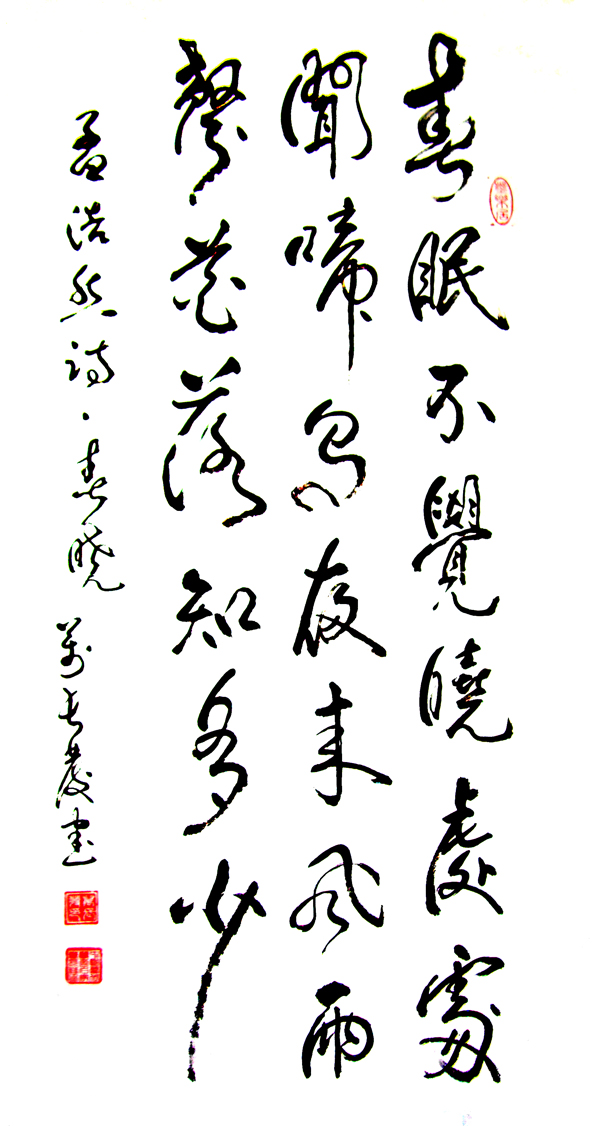 春眠不覺曉處處
聞啼鳥夜来風雨
聲花落知多少
孟浩然诗、春晓 萬长發書